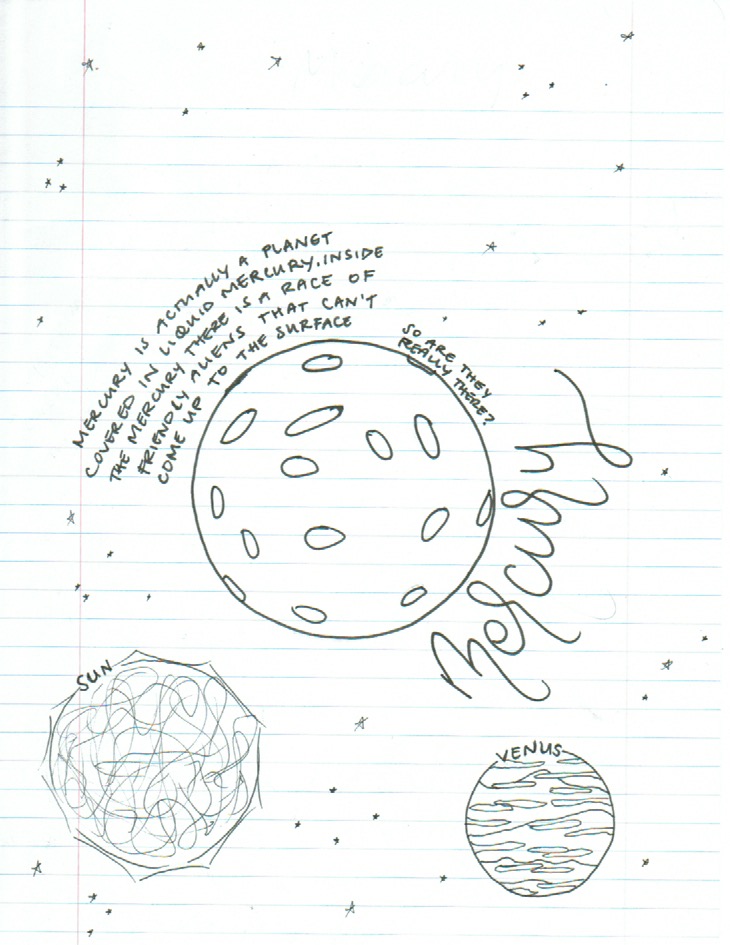 MERCURY IS ACTUALLY A PLANET
COVERED IN LIQUID MERCURY. INSIDE
THE MERCURY THERE IS A RACE OF
FRIENDLY ALIENS THAT CAN'T
COME UP TO THE SURFACE
SO ARE THEY
REALLY THERE?
Mercury
SUN
VENUS